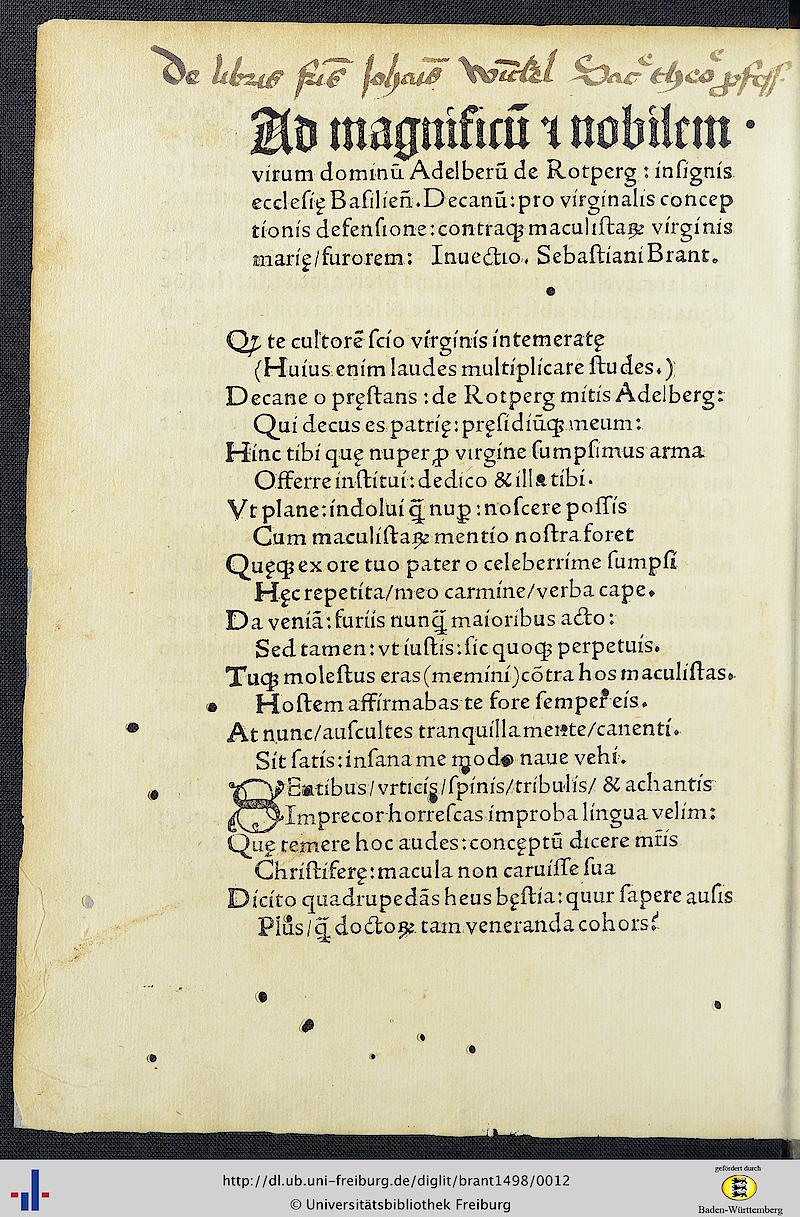 De libris fr̄is Joha̅is Winckel Sacᵉ theoᵉ ꝓfess
Ad magnificū ⁊ nobilem
virum dominū Adelberū de Rotperg : insignis
ecclesię Basilieñ. Decanū: pro virginalis concep
tionis defensione: contraqꝫ maculistaꝝ virginis
marię/furorem: Inuectio. Sebastiani Brant.
Qꝫ te cultorē scio virginis intemeratę
(Huius enim laudes multiplicare studes.)
Decane o pręstans : de Rotperg mitis Adelberg:
Qui decus es patrię: pręsidiūqꝫ meum:
Hinc tibi quę nuper ꝓ virgine sumpsimus arma
Offerre institui: dedico & illa tibi.
Vt plane: indolui q̄ nuꝑ : noscere possis
Cum maculistaꝝ mentio nostra foret
Quęqꝫ ex ore tuo pater o celeberrime sumpsi
Hęc repetita/meo carmine/verba cape.
Da veniā: furiis nunq̄ maioribus acto:
Sed tamen: vt iustis: sic quoqꝫ perpetuis.
Tuqꝫ molestus eras (memini) cōtra hos maculistas.
Hostem affirmabas te fore semper eis.
At nunc/auscultes tranquilla mente/canenti.
Sit satis: insana me modo naue vehi.
SEntibus/vrticis/spinis/tribulis/ & achantis
Imprecor horrescas improba lingua velim:
Quę temere hoc audes: concęptū dicere mr̄is
Christiferę: macula non caruisse sua
Dicito quadrupedās heus bęstia: quur sapere ausis
Plus/q̄ doctoꝝ tam veneranda cohors?
http://dl.ub.uni-freiburg.de/diglit/brant1498/0012
© Universitätsbibliothek Freiburg
gefördert durch
Baden-Württemberg